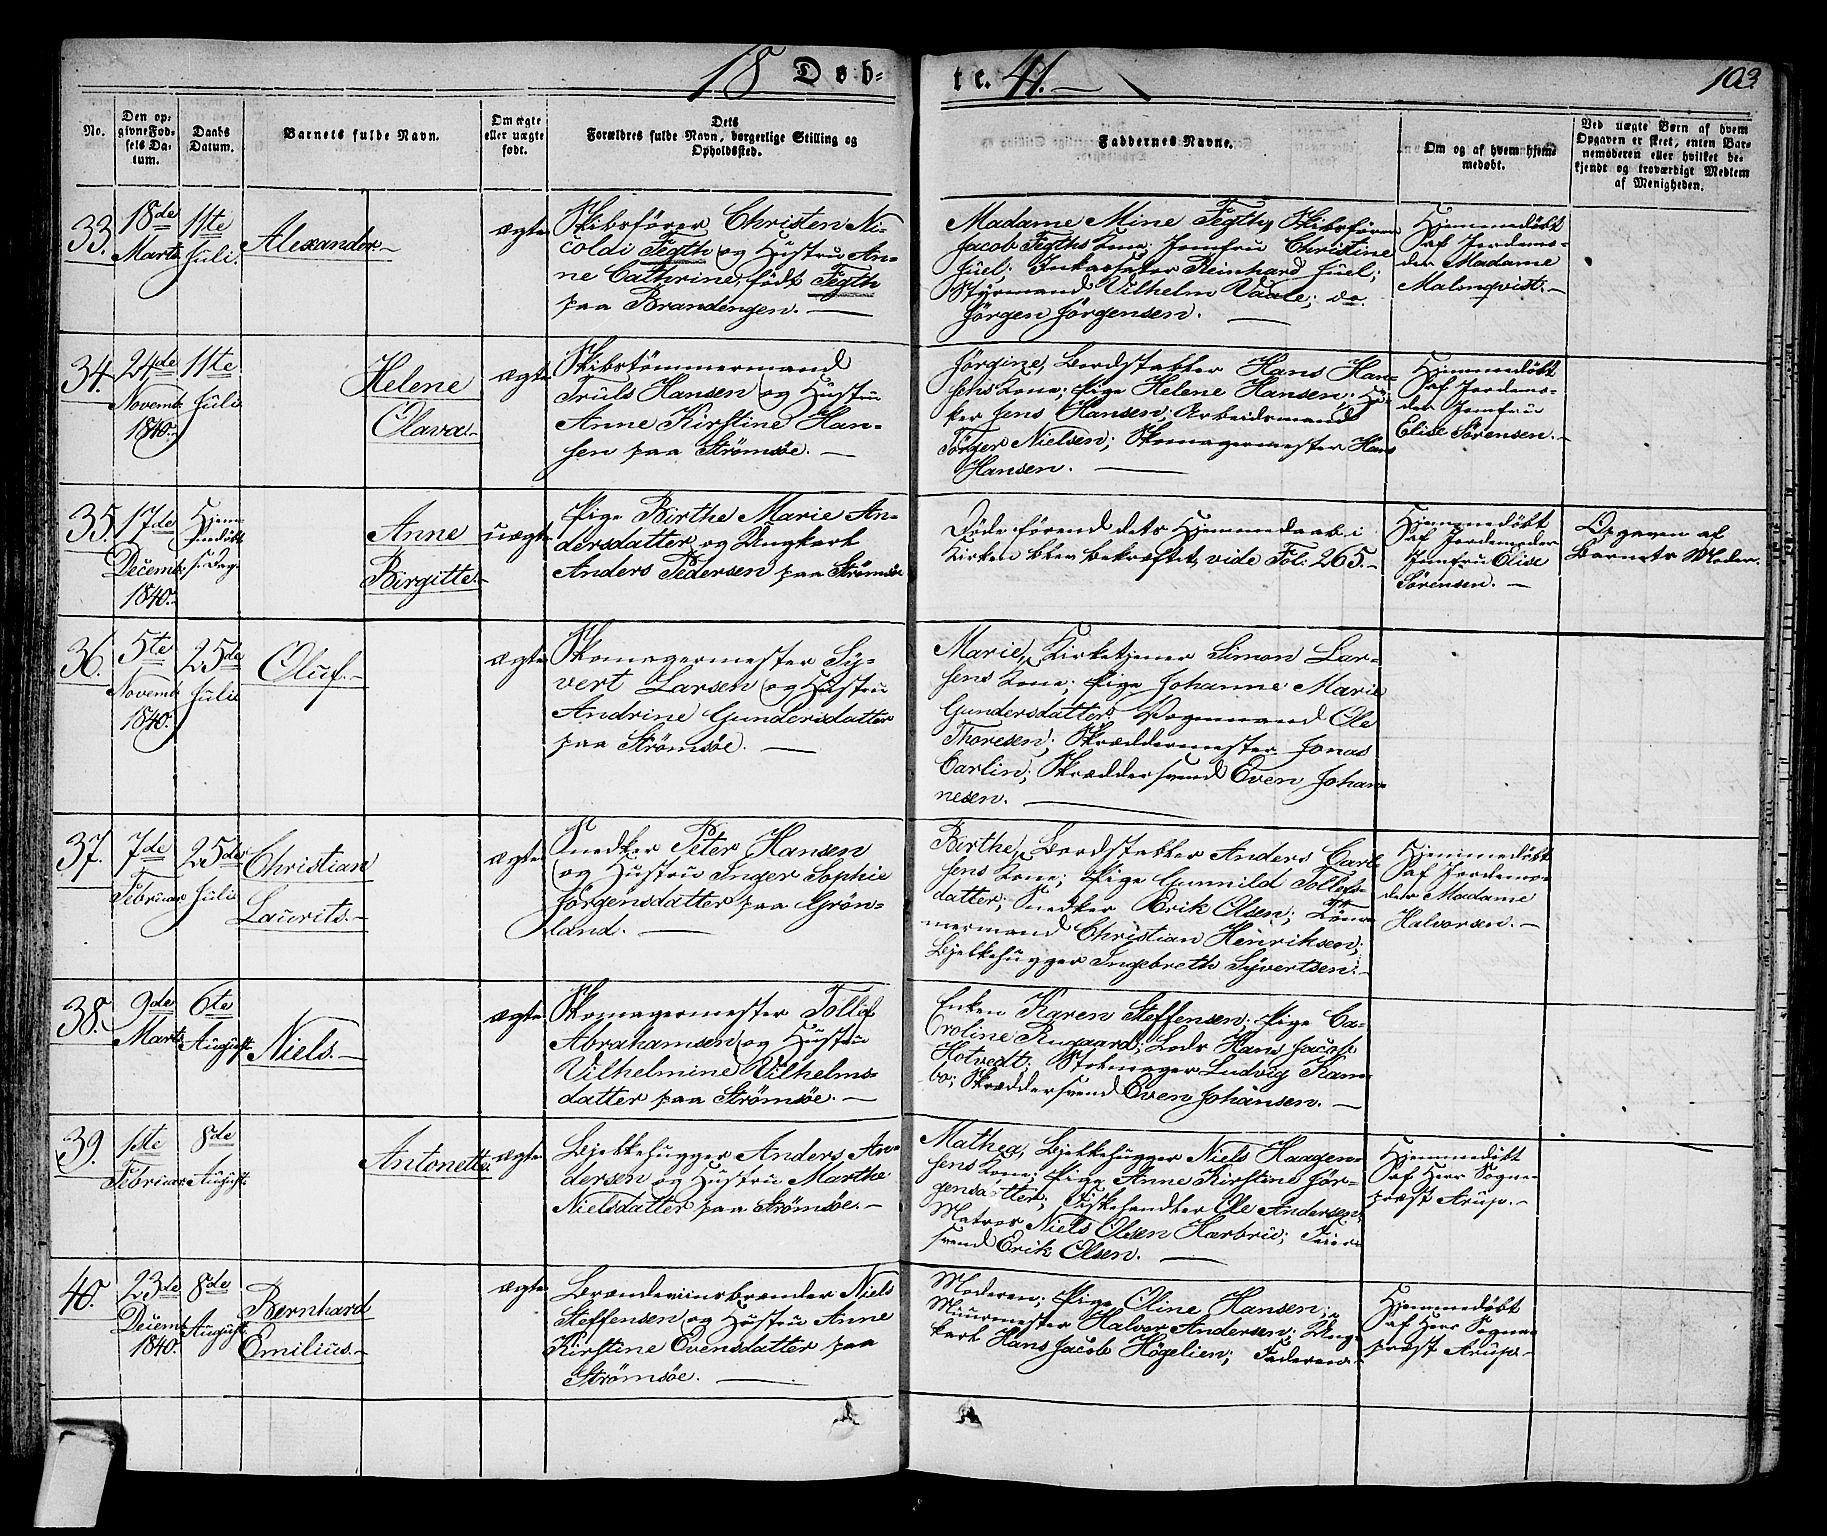 18 Døb-
te. 41.
103
No.
Den op-
givne Fød-
sels Da-
tum.
Daabs
Datum.
Barnets fulde Navn.
Om ægte
eller uægte
født.
Dets
Forældres fulde Navn, borgerlige Stilling og
Opholdssted.
Faddernes Navne.
Om og af hvem hjem-
medøbt.
Ved uægte Børn af hvem
Opgaven er skeet, enten Bar-
nemoderen eller hvilket be-
kjendt og troværdigt Medlem
af Menigheden.
33.
18de
Marts
11te
Juli
Alexander
ægte
Skibsfører Christen Ni-
coldi Fegth og Hustru An-
ne Cathrine, født Fegth
paa Brandengen.
Madame Mine Fegth, Skibsfører
Jacob Fegths Kone; Jomfru Christine
Juel; Inkassator Reinhard Juel;
Styrmand Vilhelm Vaale; do.
Jørgen Jørgensen.
Hjemmedøbt
af Jordemo-
der Madame
Malmqvist.
34.
24de
Novemb.
1840.
11te
Juli
Helene
Olava.
ægte
Skibstømmermand
Truls Hansen og Hustru
Anne Kirstine Han-
sen paa Strømsøe.
Jørgine, Bordstabler Hans Han-
sens Kone; Pige Helene Hansen; Hø-
ker Jens Hansen; Arbeidsmand
Tørger Nielsen; Skomagermester Hans
Hansen.
Hjemmedøbt
af Jordemo-
der Jomfru
Elise Sørensen.
35.
17de
Decemb.
1840.
Hjem-
medøbt
s. Dag.
Anne
Birgitte.
uægte
Pige Birthe Marie An-
dersdatter og Ungkarl
Anders Pedersen paa Strømsøe
Døde førend dets Hjemmedaab i
Kirken blev bekræftet, vide Fol: 265.
Hjemmedøbt
af Jordemoder
Jomfru Elise
Sørensen.
Opgaven af
Barnets Moder.
36.
5te
Novemb.
1840.
25de
Juli
Oluf.
ægte
Skomagermester Sy-
vert Larsen og Hustru
Andrine Gundersdatter
paa Strømsøe.
Marie, Kirketjener Simon Lar-
sens Kone; Pige Johanne Marie
Gundersdatter; Vognmand Ole
Thoresen; Skræddermester Jonas
Carlin; Skræddersvend Even Johan-
nesen.
37.
7de
Februar
25de
Juli
Christian
Laurits.
ægte
Snedker Peter Hansen
og Hustru Inger Sophie
Jørgensdatter paa Grøn-
land.
Birthe, Bordstabler Anders Carl-
sens Kone; Pige Gunnild Tollefs-
datter; Snedker Erik Olsen; Tøm-
mermand Christian Henriksen;
Bjelkehugger Ingebreth Syvertsen.
Hjemmedøbt
af Jordemo-
der Madame
Halvorsen.
38.
9de
Marts
6te
August
Niels.
ægte
Skomagermester Tollef
Abrahamsen og Hustru
Vilhelmine Vilhelms-
datter paa Strømsøe.
Enken Karen Steffensen; Pige Ca-
roline Rugaard; Lods Hans Jacob
Hotvedt; Stolmager Ludvig Ram-
bo; Skræddersvend Even Johansen.
39.
1ste
Februar
8de
August
Antonette.
ægte
Bjelkehugger Anders An-
dersen og Hustru Marthe
Nielsdatter paa Strømsøe.
Mathea, Bjelkehugger Niels Haagen-
sens Kone; Pige Anne Kirstine Jør-
gensdatter; Fiskehandler Ole Andersen;
Matros Niels Olsen Hærbrie; Feier-
svend Erik Olsen.
Hjemmedøbt
af Herr Sogne-
præst Arup.
40.
23de
Decemb.
1840.
8de
August
Bernhard
Emilius.
ægte
Brændeviinsbrænder Niels
Steffensen og Hustru Anne
Kirstine Evensdatter paa
Strømsøe.
Moderen; Pige Oline Hansen;
Muurmester Halvor Andersen; Ung-
karl Hans Jacob Høgelien; Faderen.
Hjemmedøbt
af Herr Sogne-
præst Arup.